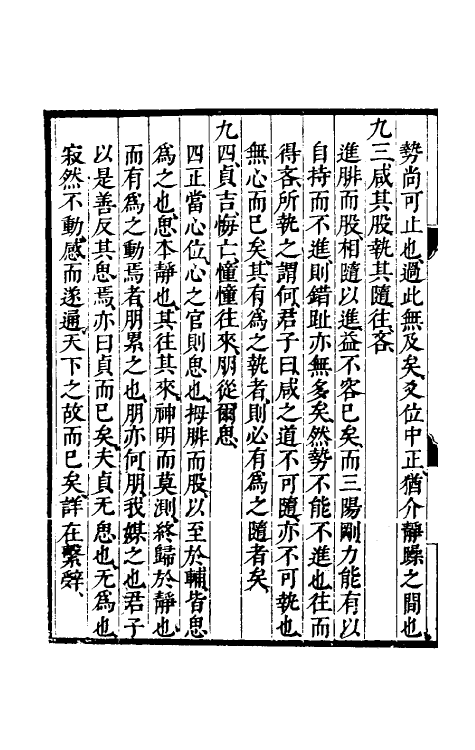 勢尚可止也過此無及矣爻位中正猶介靜躁之間也
九三咸其股執其隨往吝
進腓而股相隨以進益不容已矣而三陽剛力能有以
自持而不進則錯趾亦無多矣然勢不能不進也往而
得吝所執之謂何君子曰咸之道不可隨亦不可執也
無心而已矣其有爲之執者則必有爲之隨者矣
九四貞吉悔亡憧憧往來朋從爾思
四正當心位心之官則思也拇腓而股以至於輔皆思
爲之也思本靜也其往其來神明而莫測終歸於靜也
而有爲之動焉者朋累之也朋亦何朋我媒之也君子
以是善反其思焉亦曰貞而已矣夫貞无思也无爲也
寂然不動感而遂通天下之故而已矣詳在繫辭